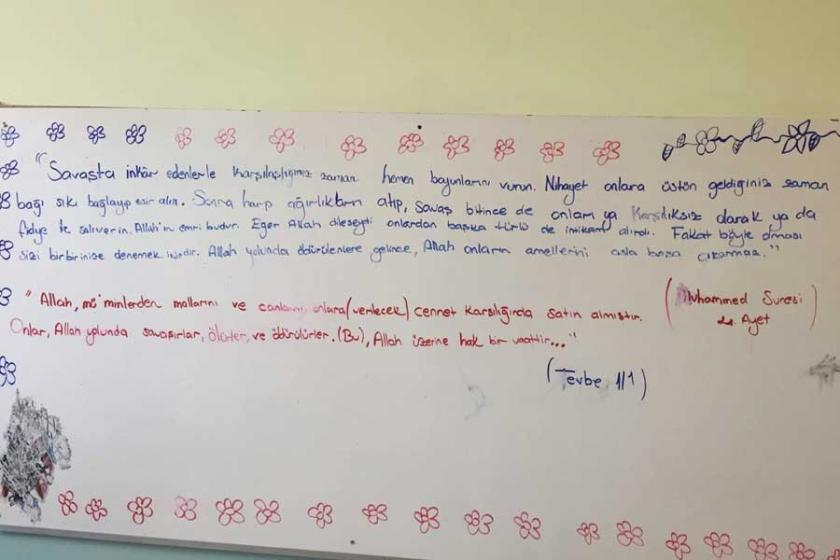 "Savaşta inkâr edenlerle karşılaştığınız zaman hemen boyunlarını vurun. Nihayet onlara üstün geldiğiniz zaman
bağı sıkı bağlayıp esir alın. Sonra harp ağırlıkların atıp, savaş bitince de onları ya karşılıksız olarak ya da
fidye ile salıverin. Allah'ın emri budur. Eğer Allah dileseydi onlardan başka türlü de intikam alırdı. Fakat böyle olması
sizi birbirinize denemek içindir. Allah yolunda öldürülenlere gelince, Allah onların amellerini asla boşa çıkarmaz."
(Muhammed Suresi
4. Ayet)
"Allah, mü'minlerden mallarını ve canlarını onlara (verilecek) cennet karşılığında satın almıştır.
Onlar, Allah yolunda savaşırlar, ölürler, ve öldürülürler. (Bu), Allah üzerine hak bir vaattir..."
(Tevbe 111)